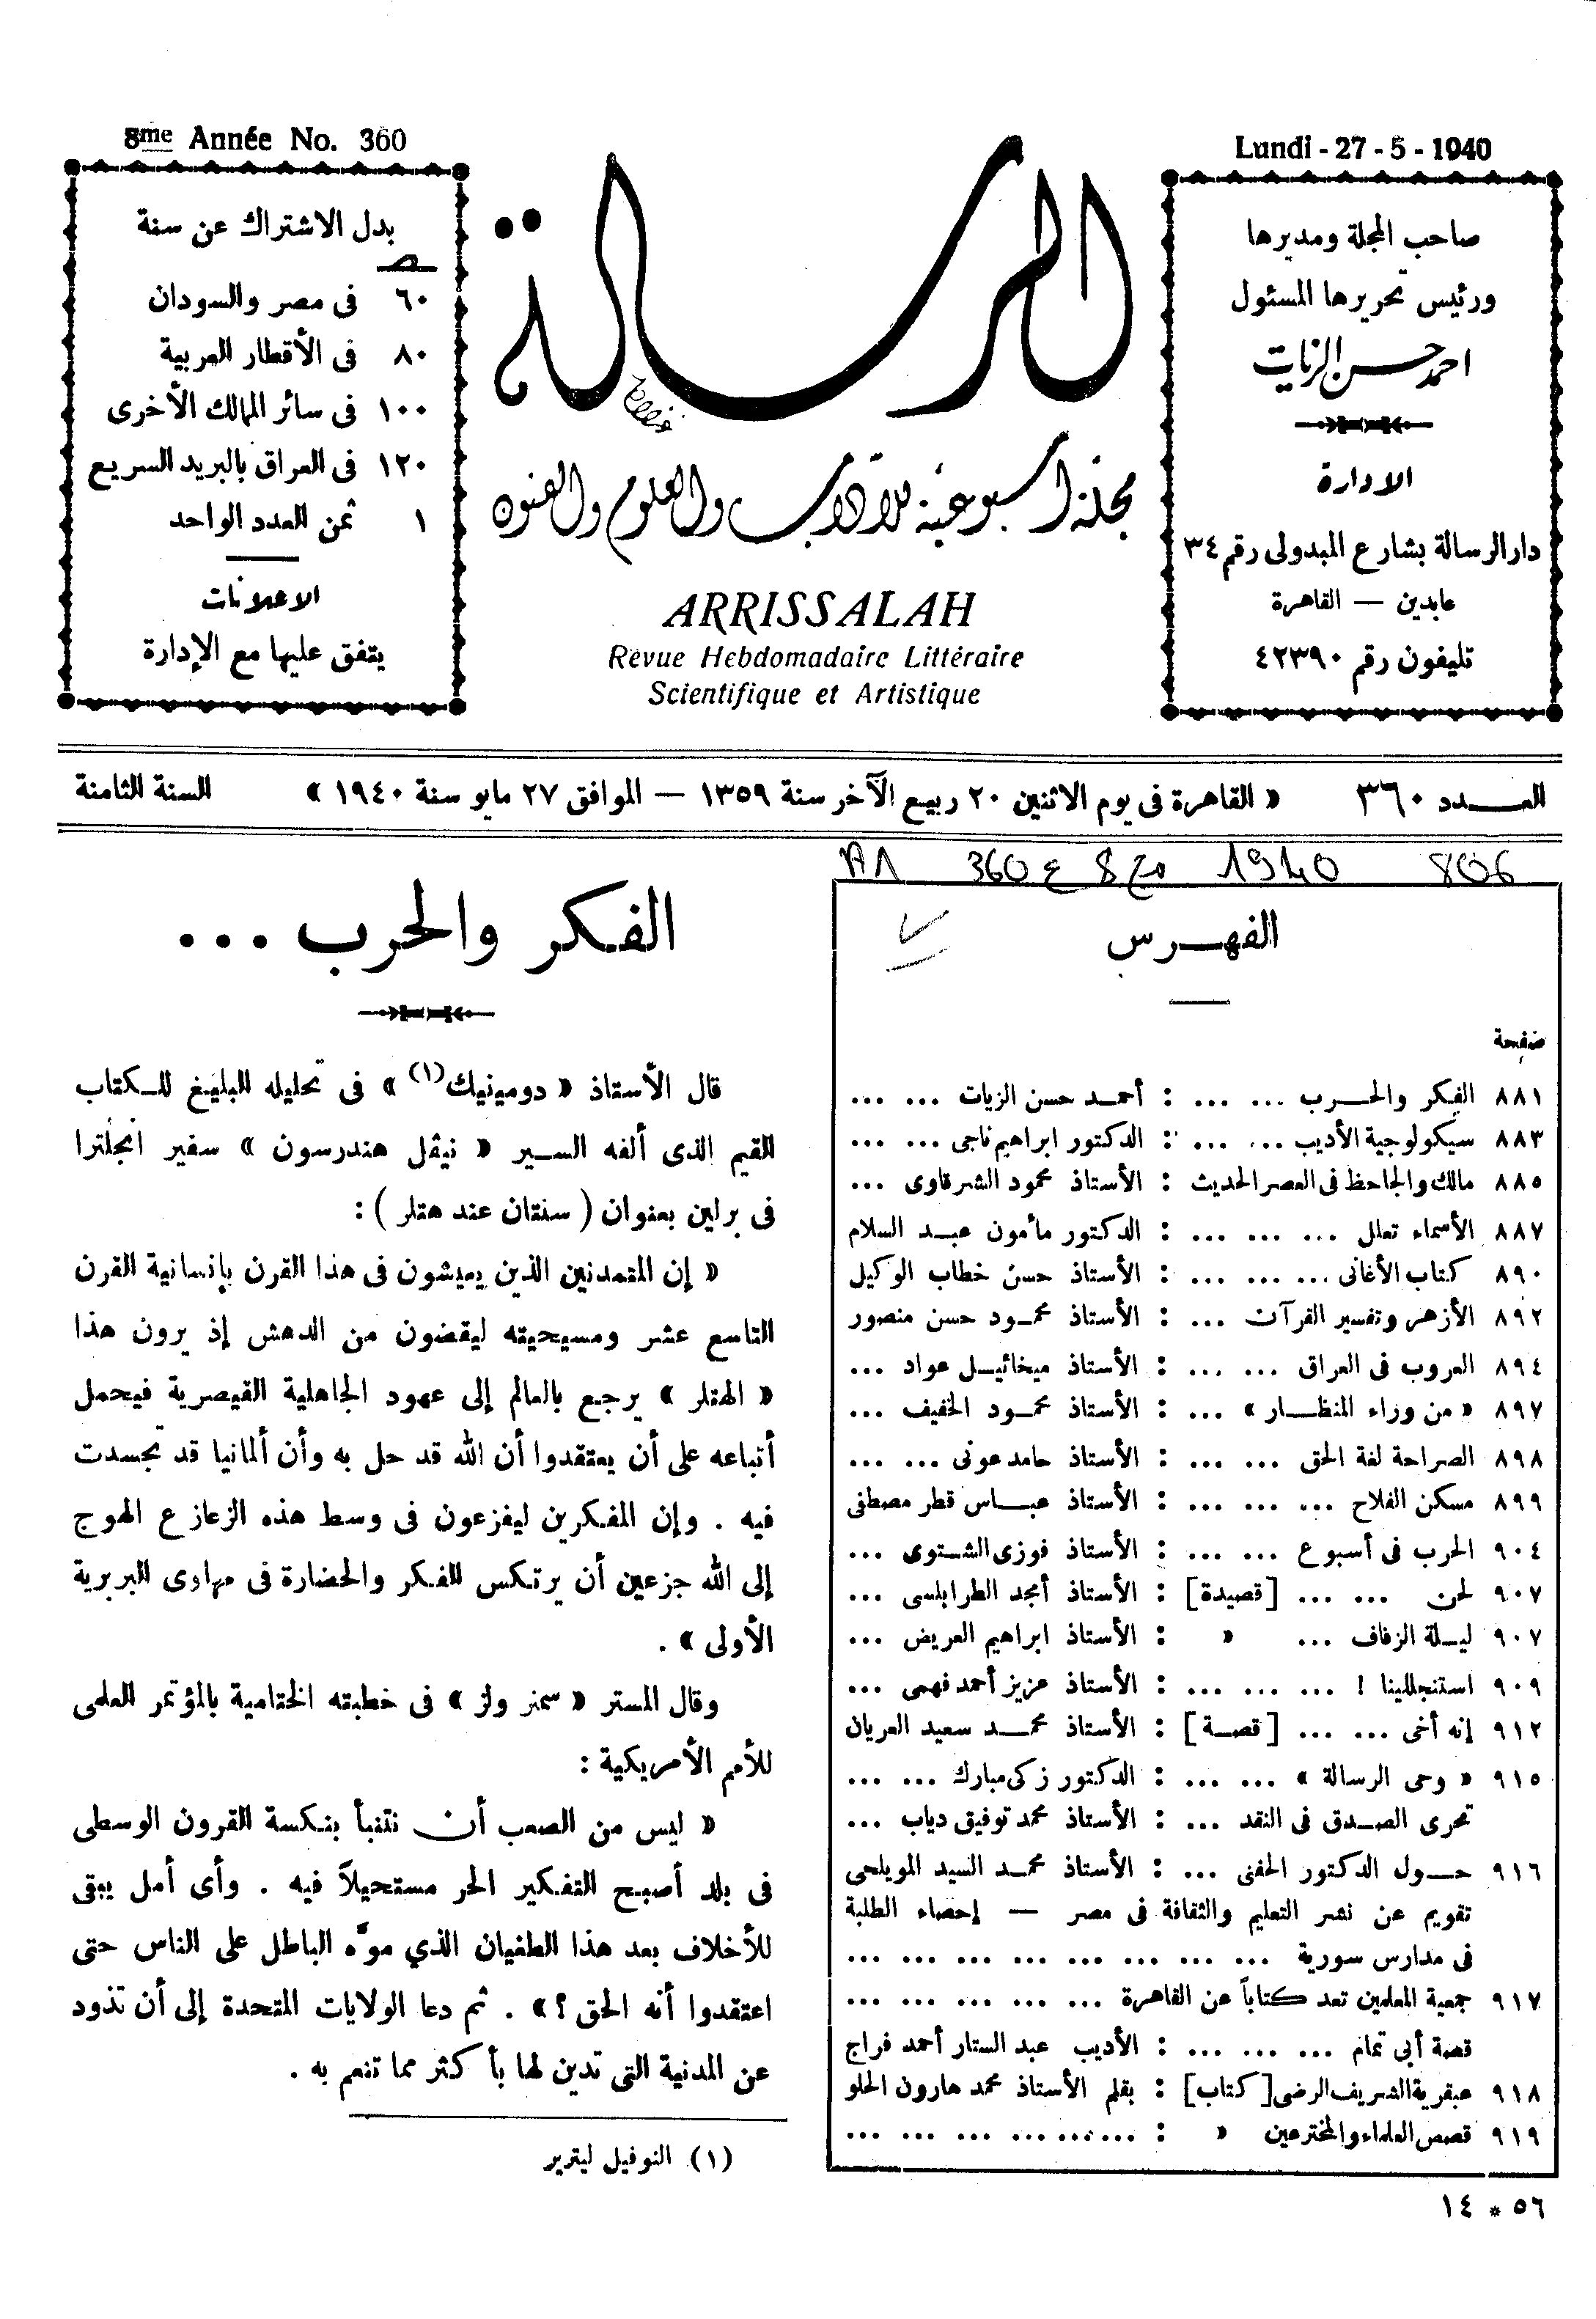 8me Année No. 360
Lundi - 27 - 5 - 1940
صاحب المجلة ومديرها
ورئيس تحريرها المسئول
احمد حسن الزيات
الادارة
دار الرسالة بشارع المبدولى رقم ٣٤
عابدين — القاهرة
تليفون رقم ٤٢٣٩٠
الرسالة
مجلة أسبوعية للآداب والعلوم والفنون
ARRISSALAH
Revue Hebdomadaire Littéraire
Scientifique et Artistique
بدل الاشتراك عن سنة
ص
٦٠ فى مصر والسودان
٨٠ فى الأقطار العربية
١٠٠ فى سائر الممالك الأخرى
١٢٠ فى العراق بالبريد السريع
١ ثمن العدد الواحد
الاعلانات
يتفق عليها مع الإدارة
العـــدد ٣٦٠
« القاهرة فى يوم الاثنين ٢٠ ربيع الآخر سنة ١٣٥٩ — الموافق ٢٧ مايو سنة ١٩٤٠ »
السنة الثامنة
806 1940 مج 8 ع 360
الفهـــرس
صفحة
٨٨١ الفكر والحـــرب ... ... : أحمـد حسن الزيات ... ...
٨٨٣ سيكولوجية الأديب ... ... : الدكتور ابراهيم ناجى ... ...
٨٨٥ مالك والجاحظ فى العصر الحديث : الأستاذ محمود الشرقاوى ...
٨٨٧ الأسماء تعلل ... ... ... : الدكتور مأمون عبـد السلام
٨٩٠ كتاب الأغانى ... ... ... : الأستاذ حسن خطاب الوكيل
٨٩٢ الأزهر وتفسير القرآن ... : الأستاذ محمـود حسن منصور
٨٩٤ العروب فى العراق ... ... : الأستاذ ميخائيـل عواد ...
٨٩٧ « من وراء المنظـــار » ... : الأستاذ محمـود الخفيف ...
٨٩٨ الصراحة لغة الحق ... ... : الأستاذ حامد عونى ... ...
٨٩٩ مسكن الفلاح ... ... ... : الأستاذ عبـاس قطر مصطفى
٩٠٤ الحرب فى أسبوع ... ... : الأستاذ فوزى الشتوى ...
٩٠٧ لحن ... ... [قصيدة] : الأستاذ أمجد الطرابلسى ...
٩٠٧ ليـلة الزفاف ... « : الأستاذ ابراهيم العريض ...
٩٠٩ استنجللينا ! ... ... ... : الأستاذ عزيز أحمد فهمى ...
٩١٢ إنه أخى ... ... [قصـة] : الأستاذ محمـــد سعيد العريان
٩١٥ « وحى الرسالة » ... ... : الدكتور زكى مبارك ... ...
تحرى الصـدق فى النقد ... : الأستاذ محمد توفيق دياب ...
٩١٦ حـــول الدكتور الحفنى ... : الأستاذ محمـد السيد المويلحى
تقويم عن نشر التعليم والثقافة فى مصر — إحصاء الطلبة
فى مدارس سورية ... ... ... ... ... ... ... ...
٩١٧ جمعية المعلمين تعد كتاباً عن القاهرة ... ... ... ... ...
قصة أبى تمام ... ... ... : الأديب عبد الستار أحمد فراج
٩١٨ عبقرية الشريف الرضى [كتاب] : بقلم الأستاذ محمد هارون الحلو
٩١٩ قصص العلماء والمخترعين « : ... ... ... ... ... ...
٥٦ * ١٤
الفكر والحرب ...
قال الأستاذ « دومينيك(١) » فى تحليله البليغ للـكتاب
القيم الذى ألفه السـير « نيڤل هندرسون » سفير انجلترا
فى برلين بعنوان ( سنتان عند هتلر ) :
« إن المتمدنين الذين يعيشون فى هذا القرن بإنسانية القرن
التاسع عشر ومسيحيته ليقضون من الدهش إذ يرون هذا
« الهتلر » يرجع بالعالم إلى عهود الجاهلية القيصرية فيحمل
أتباعه على أن يعتقدوا أن الله قد حل به وأن ألمانيا قد تجسدت
فيه . وإن المفكرين ليفزعون فى وسط هذه الزعازع الهوج
إلى الله جزعين أن يرتكس الفكر والحضارة فى مهاوى البربرية
الأولى » .
وقال المستر « سمنر ولز » فى خطبته الختامية بالمؤتمر العلمى
للأمم الأمريكية :
« ليس من الصعب أن نتنبأ بنكسة القرون الوسطى
فى بلد أصبح التفكير الحر مستحيلاً فيه . وأى أمل يبقى
للأخلاف بعد هذا الطغيان الذي موّه الباطل على الناس حتى
اعتقدوا أنه الحق ؟ » . ثم دعا الولايات المتحدة إلى أن تذود
عن المدنية التى تدين لها بأكثر مما تنعم به .
(١) النوفيل ليترير